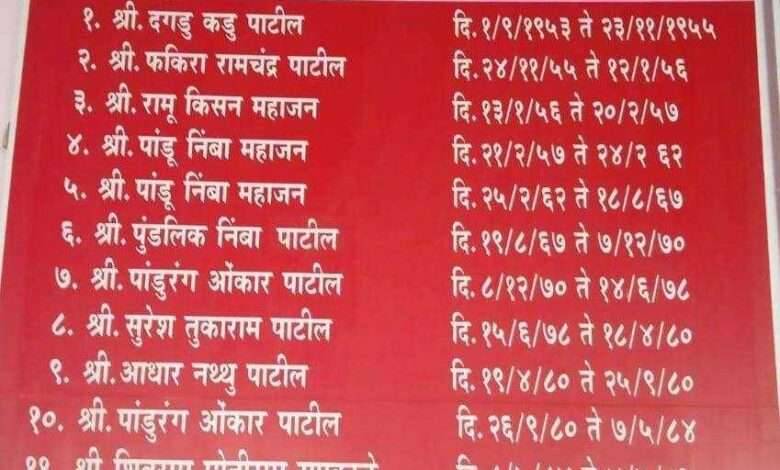 १. श्री. दगडु कडु पाटील दि. १/९/१९५३ ते २३/११/१९५५
२. श्री. फकिरा रामचंद्र पाटील दि. २४/११/५५ ते १२/१/५६
३. श्री. रामू किसन महाजन दि. १३/१/५६ ते २०/२/५७
४. श्री. पांडू निंबा महाजन दि. २१/२/५७ ते २४/२ ६२
५. श्री. पांडू निंबा महाजन दि. २५/२/६२ ते १८/८/६७
६. श्री. पुंडलिक निंबा पाटील दि. १९/८/६७ ते ७/१२/७०
७. श्री. पांडुरंग ओंकार पाटील दि. ८/१२/७० ते १४/६/७८
८. श्री. सुरेश तुकाराम पाटील दि. १५/६/७८ ते १८/४/८०
९. श्री. आधार नथ्थु पाटील दि. १९/४/८० ते २५/९/८०
१०. श्री. पांडुरंग ओंकार पाटील दि. २६/९/८० ते ७/५/८४
११. श्री